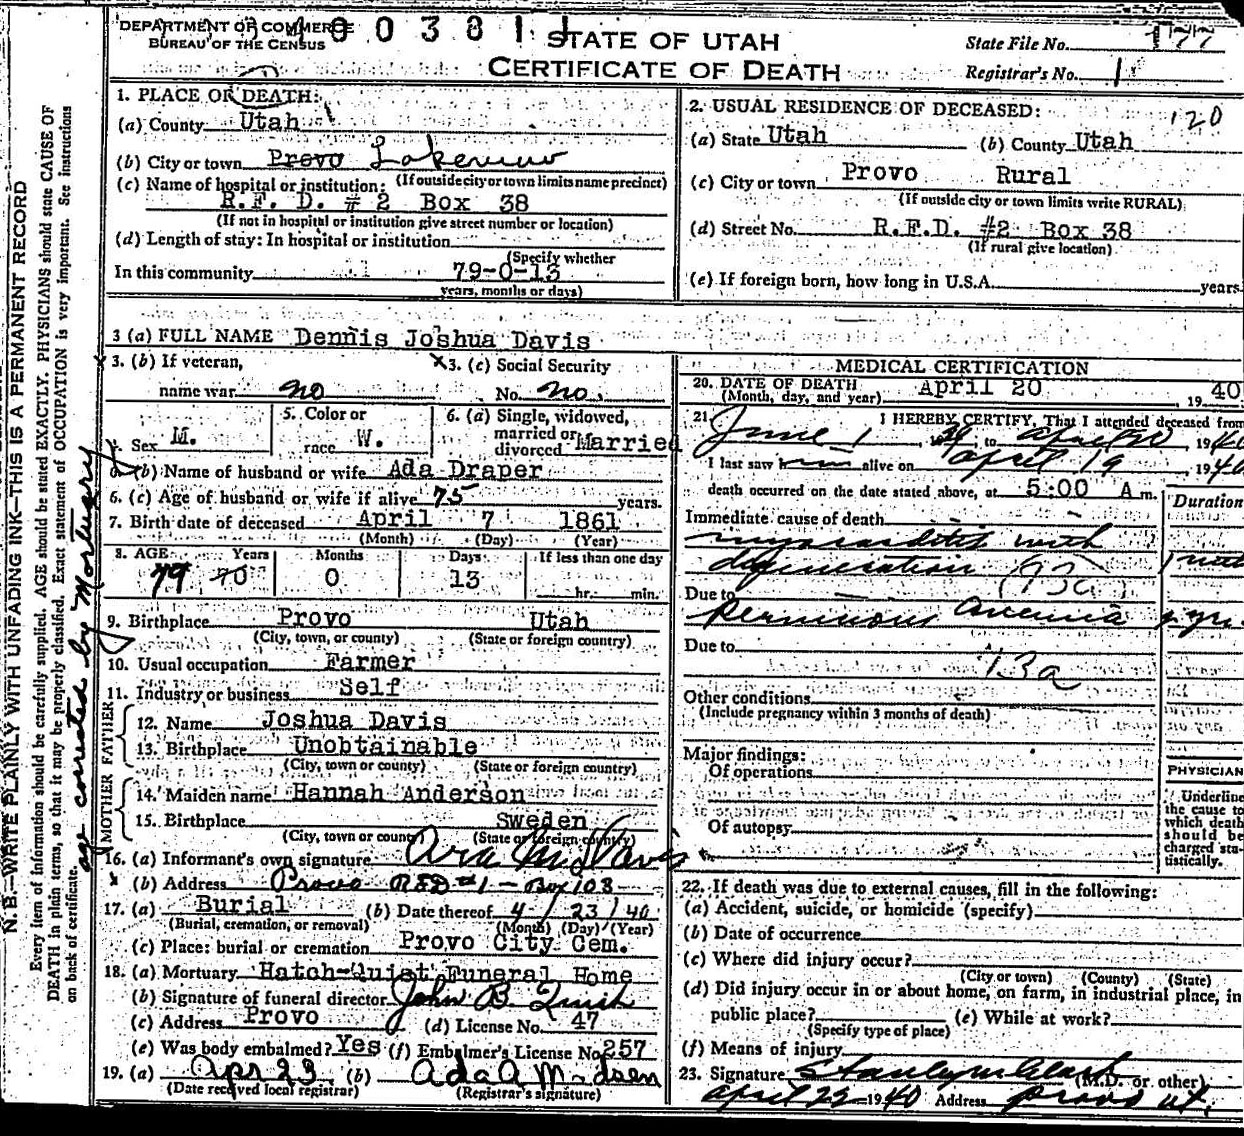 DEPARTMENT OF COMMERCE
BUREAU OF THE CENSUS
STATE OF UTAH
CERTIFICATE OF DEATH
State File No. 177
Registrar's No. 1
1. PLACE OF DEATH:
(a) County Utah
(b) City or town Provo Lakeview
(If outside city or town limits name precinct)
(c) Name of hospital or institution:
R.F.D. #2 Box 38
(If not in hospital or institution give street number or location)
(d) Length of stay: In hospital or institution
(Specify whether
In this community 79-0-13
years, months or days)
2. USUAL RESIDENCE OF DECEASED:
120
(a) State Utah (b) County Utah
(c) City or town Provo Rural
(If outside city or town limits write RURAL)
(d) Street No. R.F.D. #2 Box 38
(If rural give location)
(e) If foreign born, how long in U.S.A. years
3 (a) FULL NAME Dennis Joshua Davis
3. (b) If veteran,
name war no
3. (c) Social Security
No. no.
4. Sex M.
5. Color or
race W.
6. (a) Single, widowed,
married or
divorced Married
6. (b) Name of husband or wife Ada Draper
6. (c) Age of husband or wife if alive 75 years.
7. Birth date of deceased April 7 1861
(Month) (Day) (Year)
8. AGE Years Months Days If less than one day
79 70 0 13 hr. min.
9. Birthplace Provo Utah
(City, town, or county) (State or foreign country)
10. Usual occupation Farmer
11. Industry or business Self
FATHER
12. Name Joshua Davis
13. Birthplace Unobtainable
(City, town or county) (State or foreign country)
MOTHER
14. Maiden name Hannah Anderson
15. Birthplace Sweden
(City, town or county) (State or foreign country)
16. (a) Informant's own signature Ora M. Davis
(b) Address Provo RFD #1 - Box 108
17. (a) Burial (b) Date thereof 4 / 23 / 40
(Burial, cremation, or removal) (Month) (Day) (Year)
(c) Place: burial or cremation Provo City Cem.
18. (a) Mortuary Hatch-Quist Funeral Home
(b) Signature of funeral director John B Quist
(c) Address Provo (d) License No. 47
(e) Was body embalmed? Yes (f) Embalmer's License No. 257
19. (a) Apr 23 (b) Ada A Madsen
(Date received local registrar) (Registrar's signature)
MEDICAL CERTIFICATION
20. DATE OF DEATH April 20 1940
(Month, day, and year)
21. I HEREBY CERTIFY, That I attended deceased from
June 1, 1939, to April 20 1940
I last saw him alive on April 19 1940
death occurred on the date stated above, at 5:00 A m.
Duration
Immediate cause of death
myocarditis with
degeneration (93a)
Due to
pernicious anemia yrs.
Due to
73a
Other conditions
(Include pregnancy within 3 months of death)
Major findings:
Of operations
Of autopsy
PHYSICIAN
Underline
the cause to
which death
should be
charged sta-
tistically.
22. If death was due to external causes, fill in the following:
(a) Accident, suicide, or homicide (specify)
(b) Date of occurrence
(c) Where did injury occur?
(City or town) (County) (State)
(d) Did injury occur in or about home, on farm, in industrial place, in
public place? (e) While at work?
(Specify type of place)
(f) Means of injury
23. Signature Stanley M Clark (M.D. or other)
April 22 1940 Address Provo Ut.
N. B.—WRITE PLAINLY WITH UNFADING INK—THIS IS A PERMANENT RECORD
Every item of information should be carefully supplied. AGE should be stated EXACTLY. PHYSICIANS should state CAUSE OF
DEATH in plain terms, so that it may be properly classified. Exact statement of OCCUPATION is very important. See instructions
on back of certificate.
age corrected by Mortuary